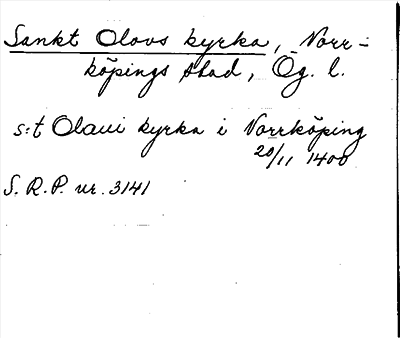 Sankt Olovs kyrka, Norr-
köpings stad, Ög. l.
s:t Olaui kyrka i Norrköping
20/11 1400
S. R. P. nr. 3141